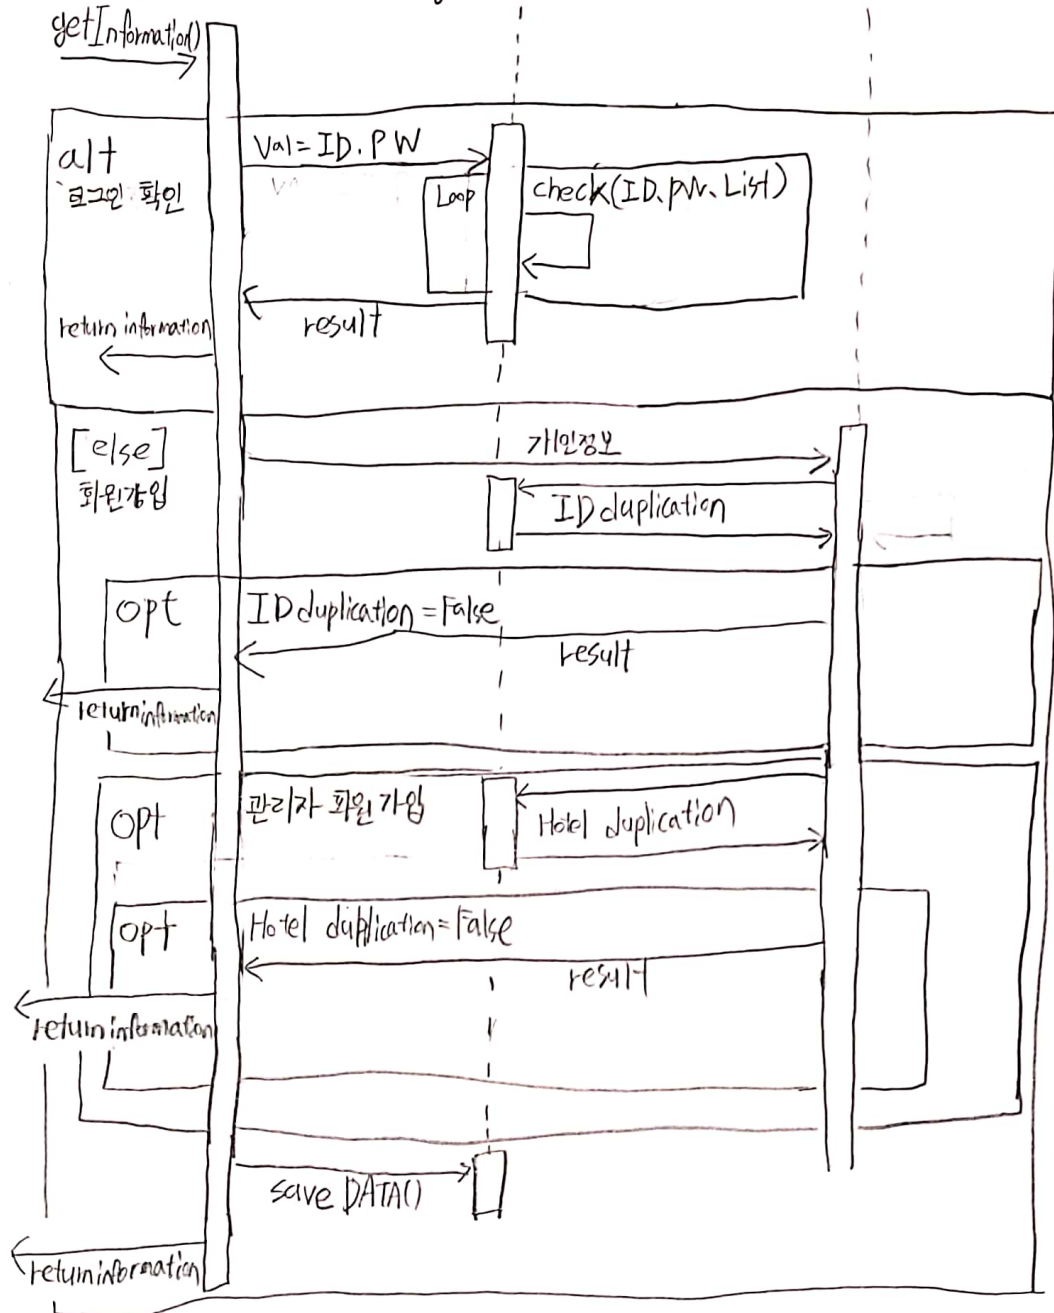 getInformation()
alt
로그인 확인
Val = ID. PW
Loop
check(ID. PW. List)
result
return information
[else]
회원가입
개인정보
ID duplication
opt
ID duplication = False
result
return information
opt
관리자 회원가입
Hotel duplication
opt
Hotel duplication = False
result
return information
save DATA()
return information